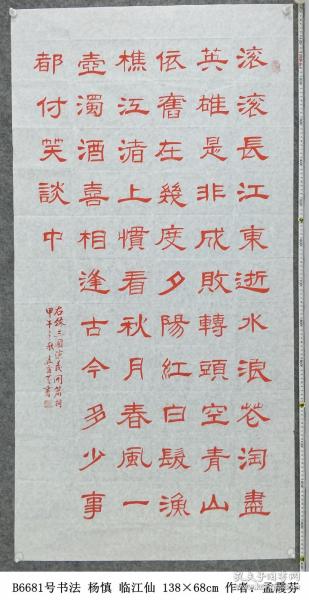 滚滚長江東逝水浪花淘盡
英雄是非成敗轉頭空青山
依舊在幾度夕陽紅白髮漁
樵江渚上慣看秋月春風一
壺濁酒喜相逢古今多少事
都付笑談中
右錄三國演義開篇詞
甲午之秋孟霞芬書
B6681号书法 杨慎 临江仙 138×68cm 作者：孟霞芬